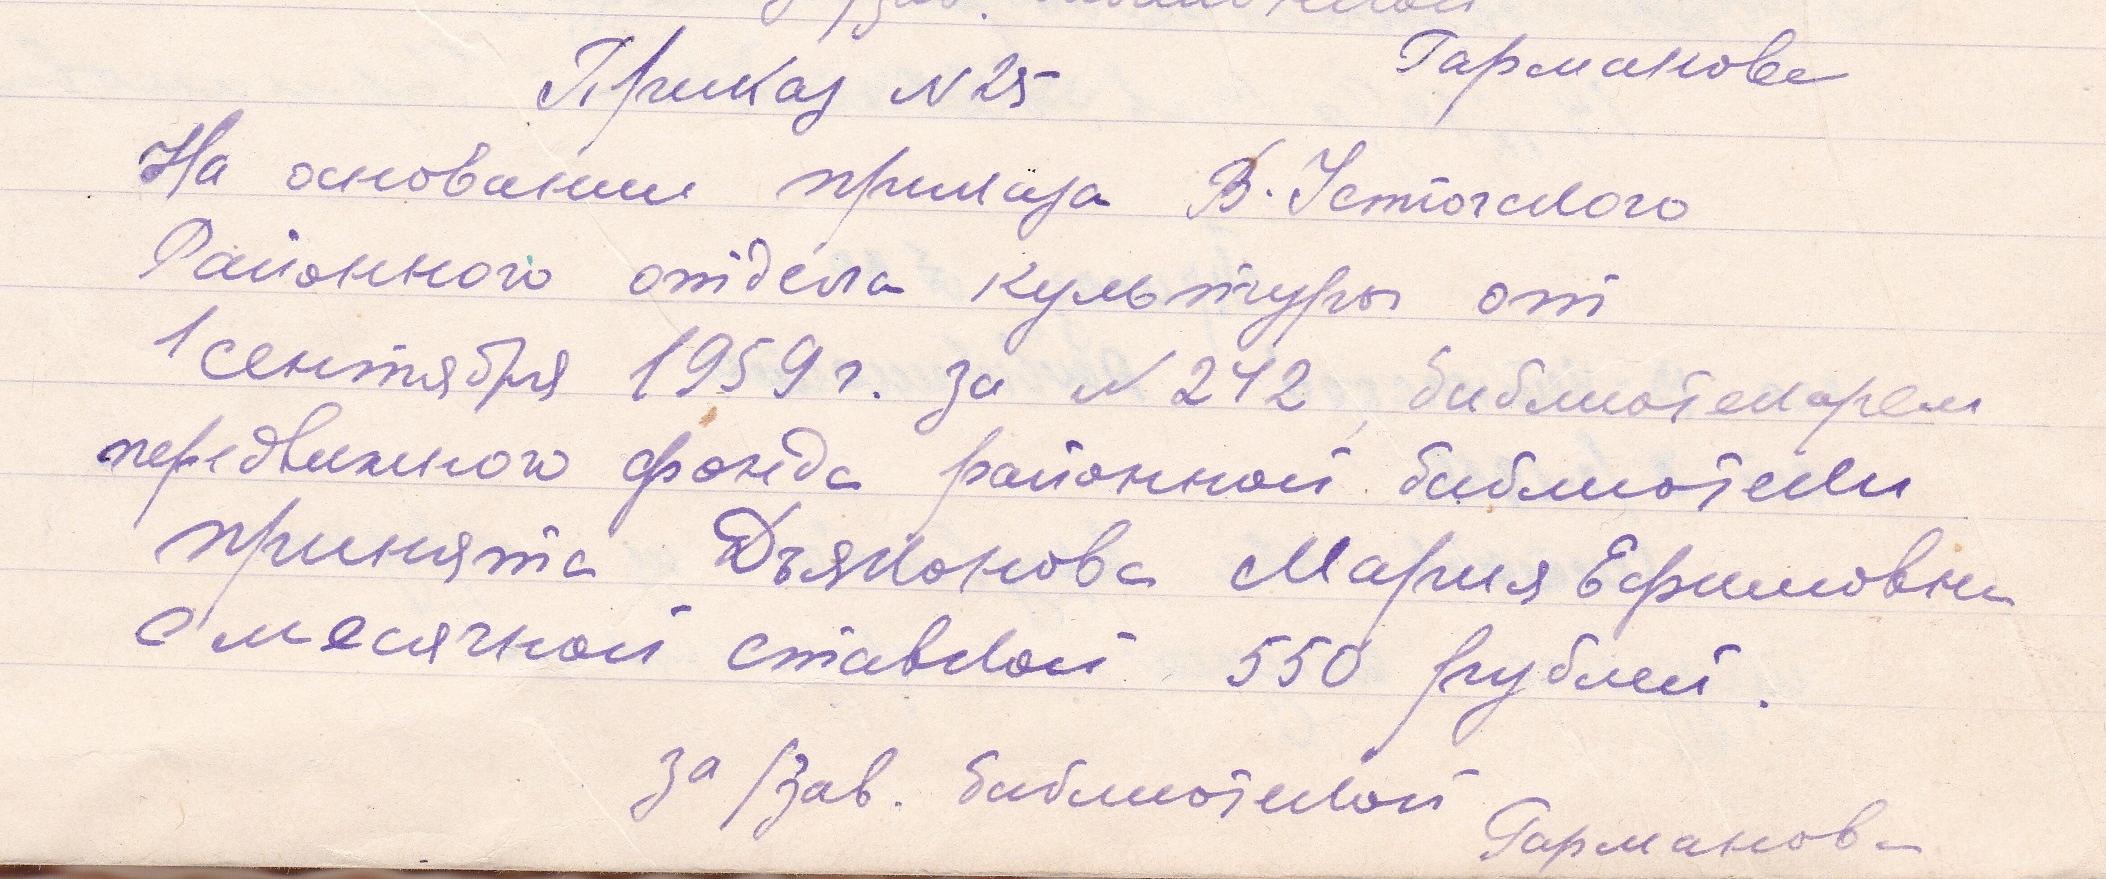 /зав. библиотекой
Гарманова
Приказ N 25
На основании приказа В-Устюгского
Районного отдела культуры от
1 сентября 1959 г. за N 242, библиотекарем
передвижного фонда районной библиотеки
принята Дъяконова Мария Ефимовна
с месячной ставкой 550 рублей.
за /зав. библиотекой
Гарманова